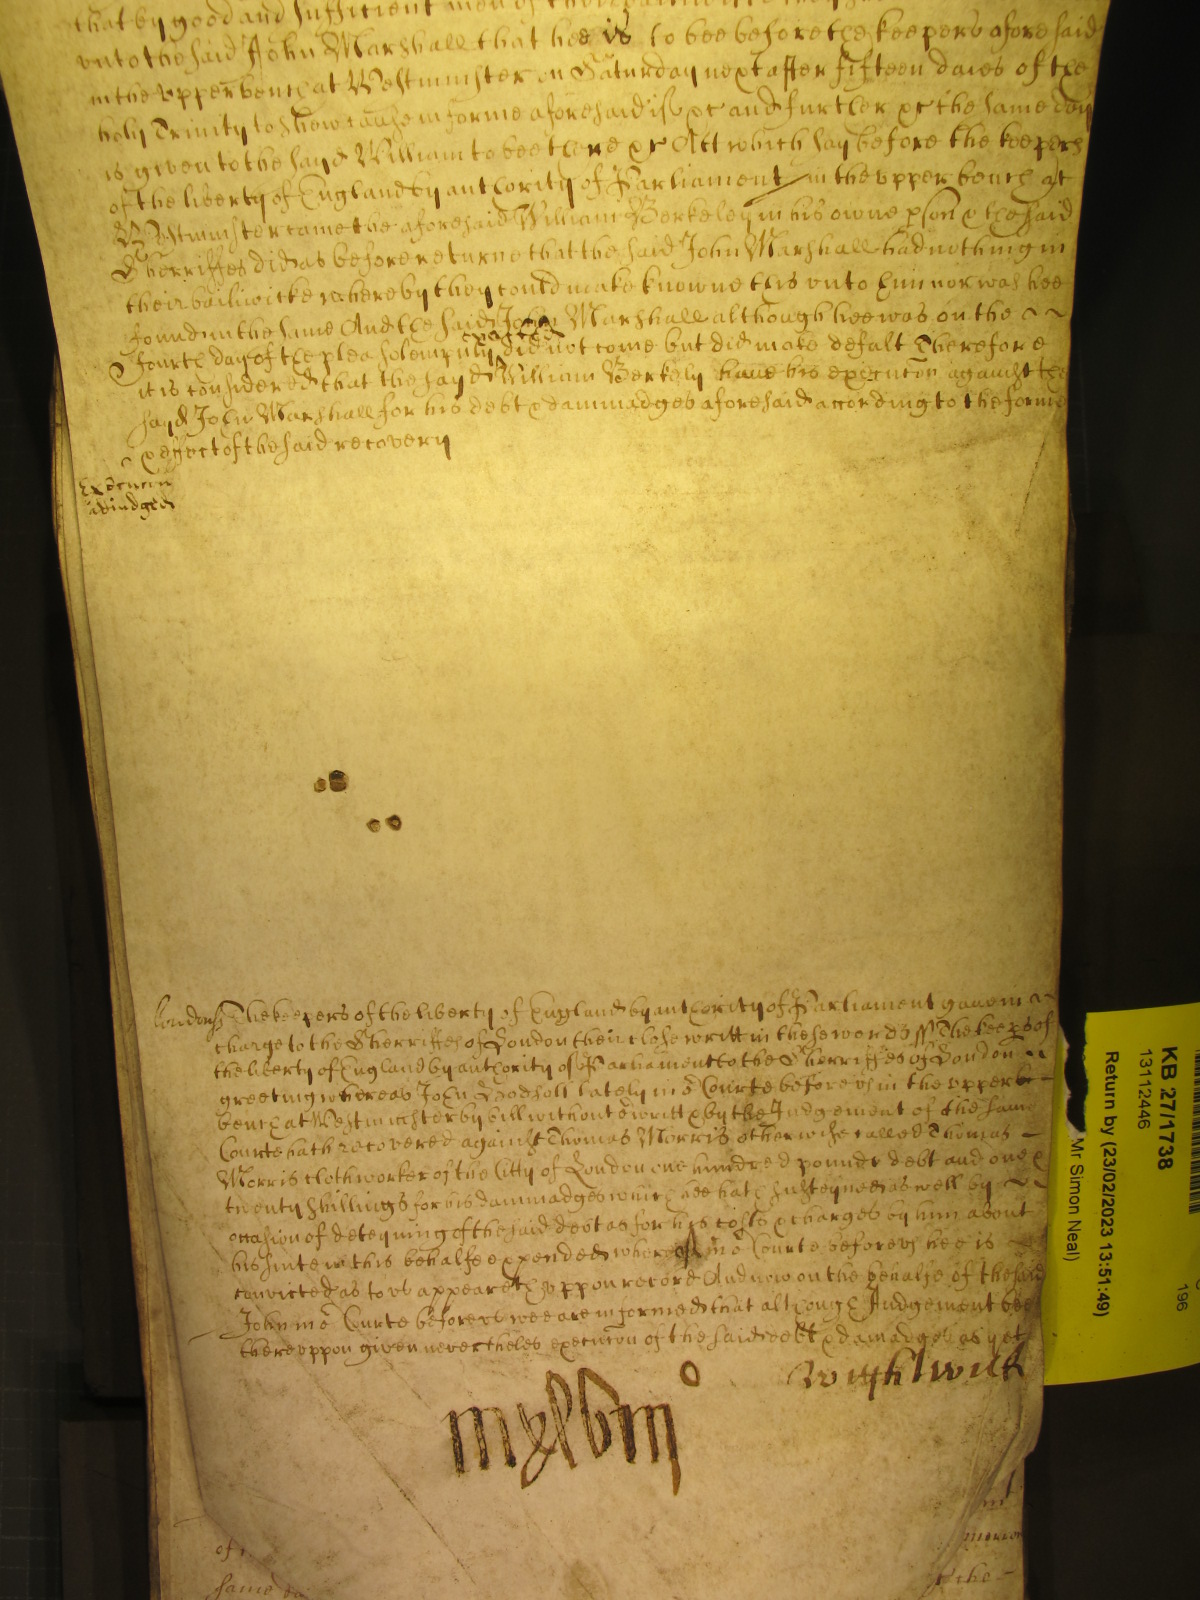 that by good and sufficient men of
vnto the said John Marshall that hee is to bee before the keepers aforesaid
in the vpper bench at Westminster on Saturday next after fifteen daies of the
holy Trinity to show cause in forme aforesaid if &c and further &c the same day
is given to the sayd William to bee there &c Att which day before the keepers
of the liberty of England by authority of Parliament in the vpper bench at
Westminster came the aforesaid William Berkeley in his owne pson & the said
Sherriffes did as before returne that the said John Marshall had nothing in
their bailiwicke whereby they could make knowne this vnto him nor was hee
found in the same And the said John Marshall although hee was on the
exacted
fourth day of the plea solempnly did not come but did make defalt Therefore
it is considered that the sayd William Berkely have his execucon against the
sayd John Marshall for his debt & dammadges aforesaid according to the forme
& effect of the said recovery
Execucin
adiudged
London ss The keepers of the liberty of England by authority of Parliament gave in
charge to the Sherriffes of London their close writt in these words ss The keeps of
the liberty of England by authority of Parliament to the Sherriffes of London
greeting whereas John lately in o Courte before vs in the vpper
bench at Westminster by bill without o writt & by the Judgement of the same
Courte hath recovered against Thomas Morris otherwise called Thomas
Morris clothworker of the Citty of London one hundred pounds debt and one &
twenty shillings for his dammadges which hee hath susteyned as well by
occasion of deteyning of the said debt as for his costs & charges by him about
his suite in this behalfe expended whereof in o Courte before vs hee is
convicted as to vs appeareth vppon record And now on the behalfe of the said
John in o Courte before vs wee are informed that although Judgement bee
therevppon given nevertheles execucon of the said debt & damadges as yet
Wightwick
mxlviij o
of
same
the
KB 27/1738
13112446
Return by (23/02/2023 13:51:49)
Mr Simon Neal)
196